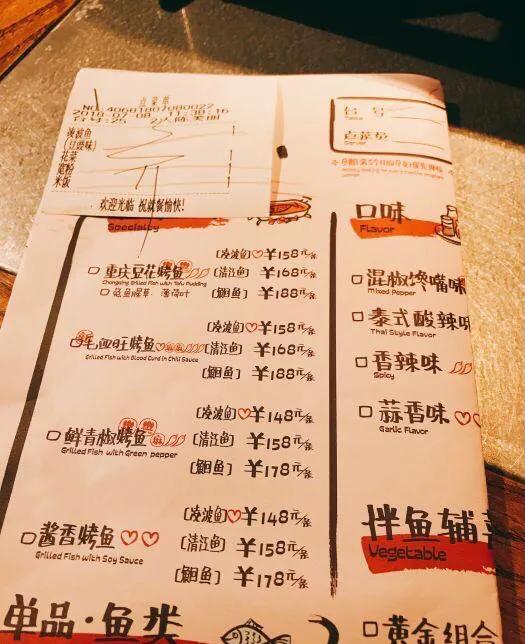 点菜单
NO:40681807080022
2018-07-08 11:38:16
台号:25 2人陈美丽
凌波鱼
(豆豉味)
花菜
宽粉
米饭
欢迎光临 祝就餐愉快!
台 号
点菜员
Server
Specialty
□ 重庆豆花烤鱼
Chongqing Grilled Fish with Tofu Pudding
[凌波鱼]♡¥158元/条
[清江鱼] ¥168元/条
[鮰鱼] ¥188元/条
毛血旺烤鱼
Grilled Fish with Blood Curd in Chili Sauce
[凌波鱼]♡¥158元/条
[清江鱼] ¥168元/条
[鮰鱼] ¥188元/条
□ 鲜青椒烤鱼
Grilled Fish with Green pepper
[凌波鱼]♡¥148元/条
[清江鱼] ¥158元/条
[鮰鱼] ¥178元/条
□ 酱香烤鱼♡♡
Grilled Fish with Soy Sauce
[凌波鱼]♡¥148元/条
[清江鱼] ¥158元/条
[鮰鱼] ¥178元/条
单品·鱼类
口味
Flavor
□ 混椒馋嘴味
Mixed Pepper
□ 泰式酸辣味
Thai Style Flavor
□ 香辣味
Spicy
□ 蒜香味♡♡
Garlic Flavor
拌鱼辅
Vegetable
□ 黄金组合